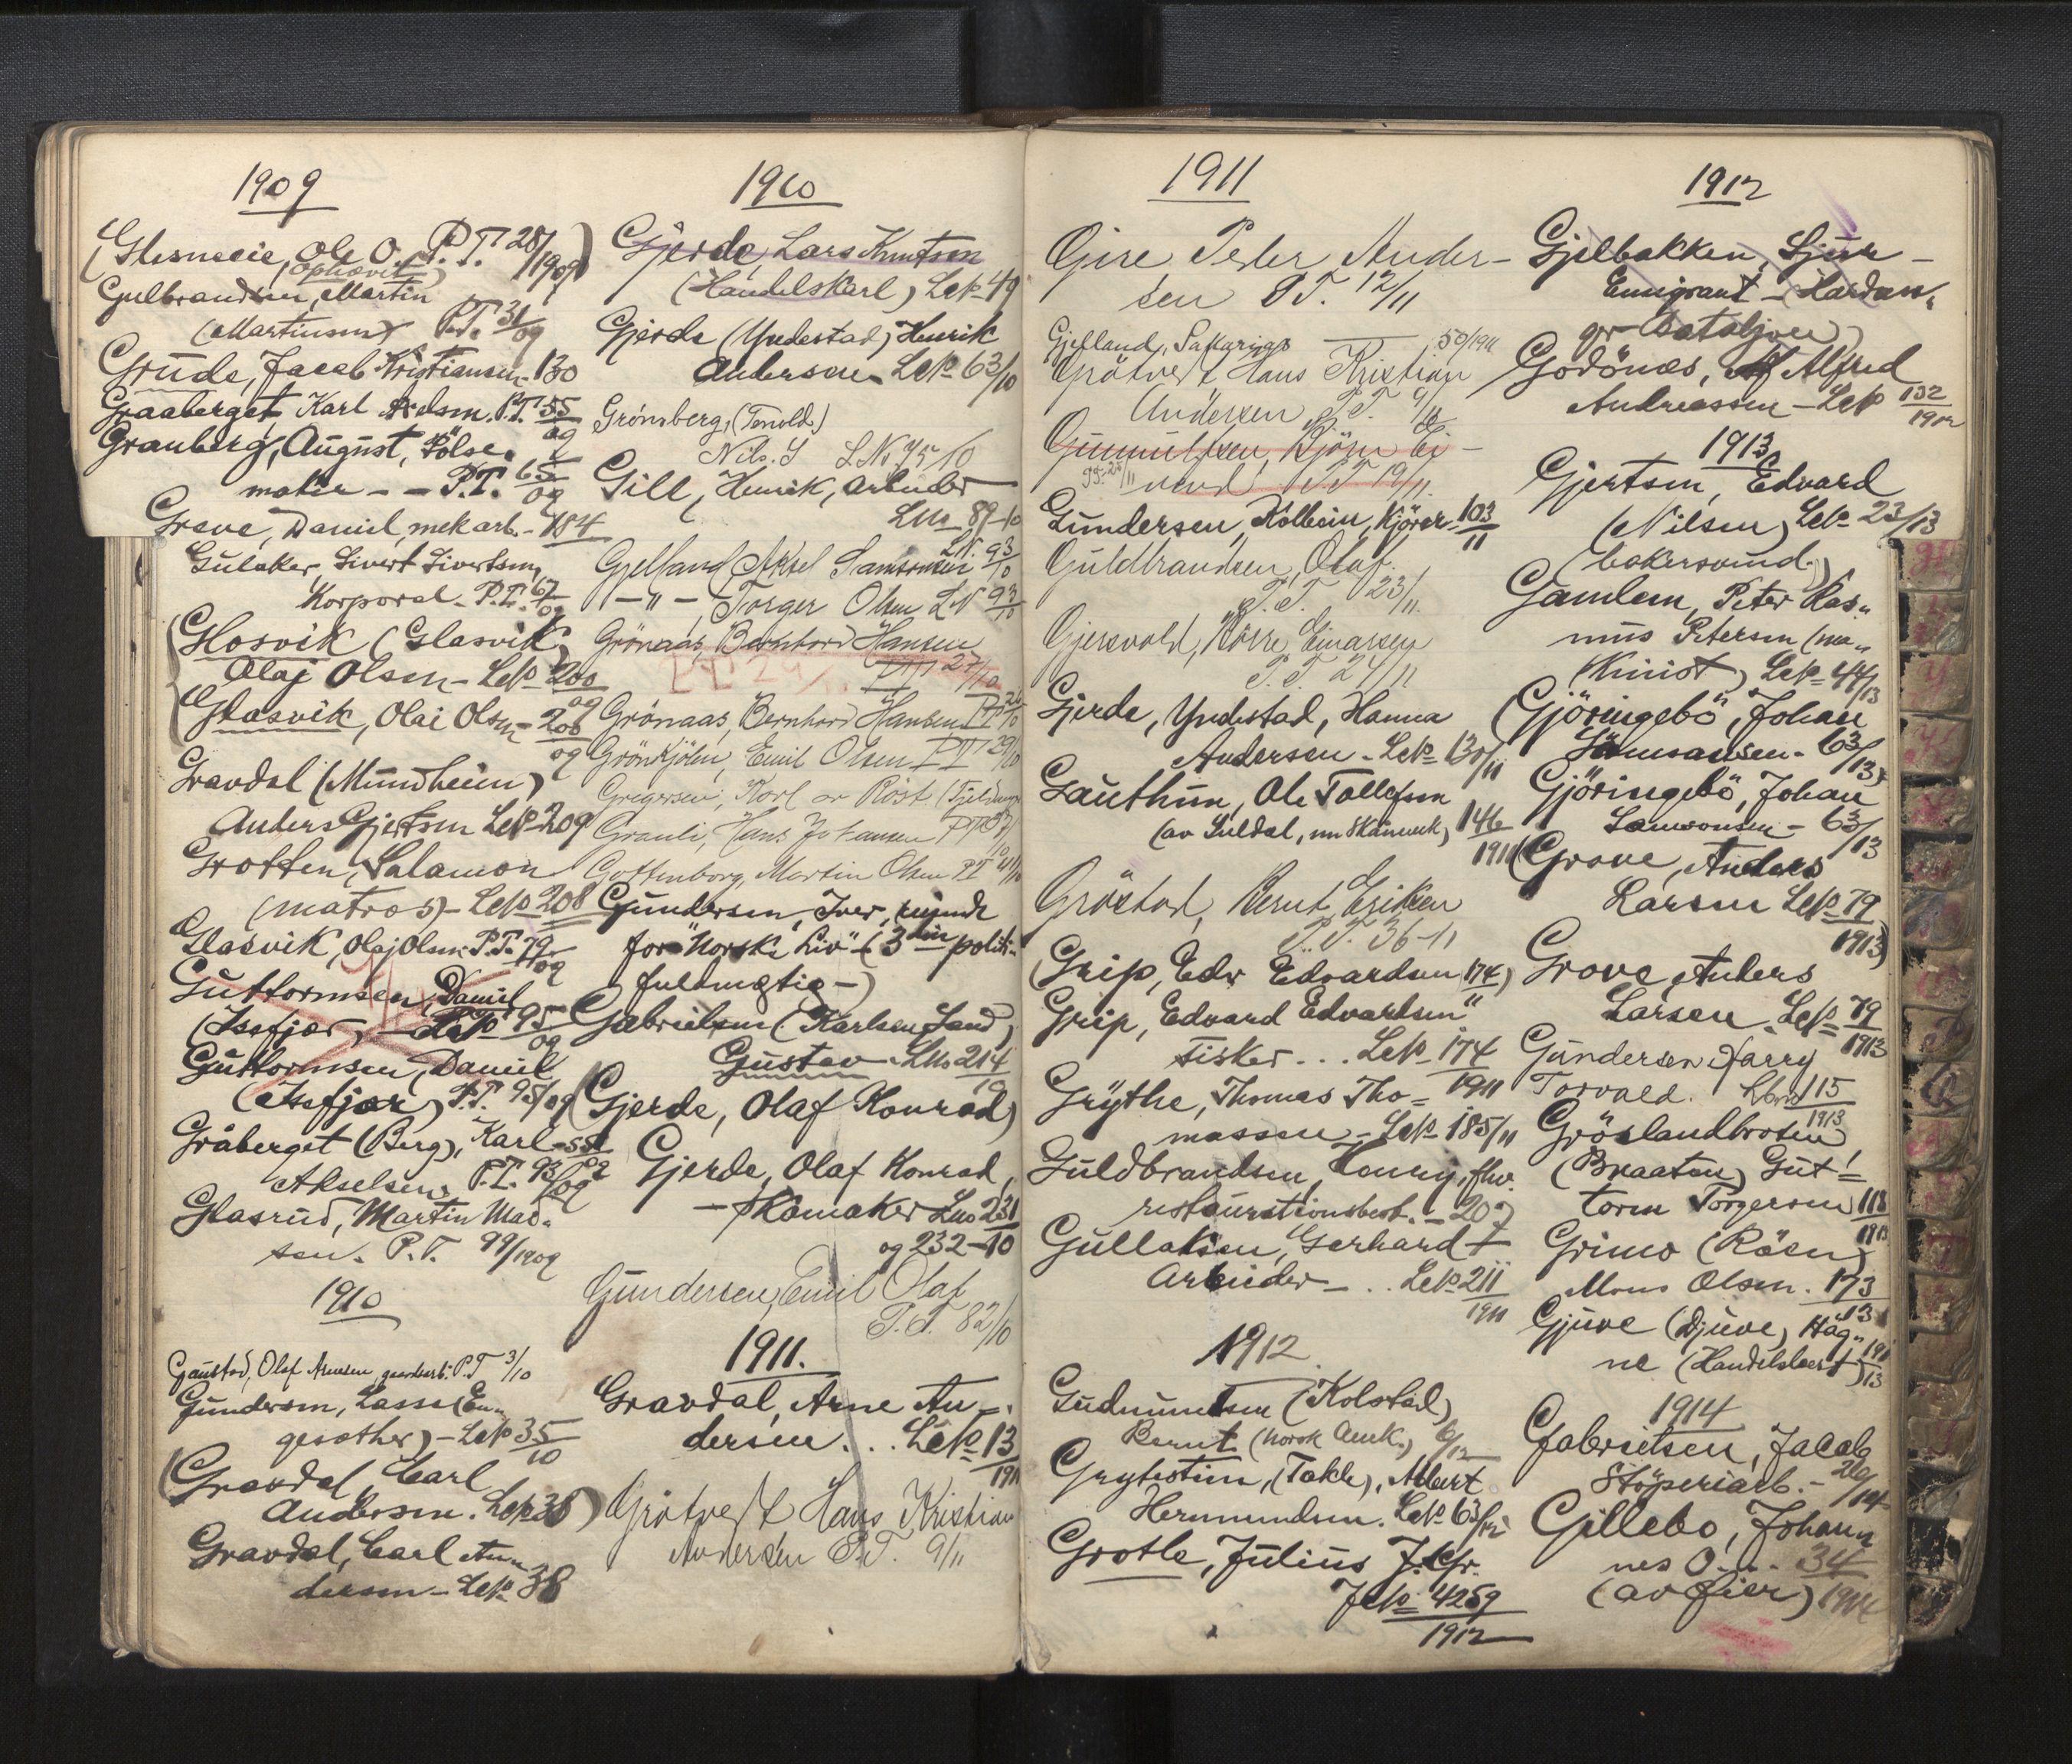 1909
Ole O. P.T. 28/1909)
(Ophævet)
Gulbrandsen, Martin
(Martinsen) P.T. 31/09
Grude, Jacob Kristiansen 130
Graaberget, Karl P.T. 55/09
Granberg, August, Pølse-
maker - - P.T. 65/09
Greve, Daniel, mek arb. - 184
Gulaker, Sivert Sivertsen,
Korporal - P.T. 67/09
Glosvik (Glasvik)
Olaj Olsen - LeNo 200/09
Glasvik, Olai Olsen - 200/09
Gravdal (Mundheim)
Anders Gjertsen LeNo 209
Grotten, Salamon
(matros) - LeNo 208
Glasvik, Olaj Olsen P.T. 79/09
Guttormsen, Daniel
(Issfjær) - LeNo 95/09
Guttormsen, Daniel
(Issfjær) P.T. 95/09
Gråberget (Berg), Karl
Akselsen, P.T. 93/09
Glasrud, Martin Mad-
sen. P.T. 99/1909
1910
Gaustad, Olaf Arnesen, P.T 3/10
Gundersen, Lasse (En-
gesæther) - LeNo 35/10
(Gravdal, Carl
Andersen. LeNo 38)
Gravdal, Carl An-
dersen - LeNo 38
1910
Gjerde, Lars Knutsen
(Handelskarl) LeNo 49
Gjerde (Yndestad) Henrik
Andersen LeNo 63/10
Grönsberg, (Tenold.)
Nils. S L No 75/10
Gill, Henrik, arbeider
LNo 89-10
Gjelland Aksel Samsonsen LN. 93/10
- " - Torger Olsen LN 93/10
Grönaas, Bernhard Hansen
PT 27/10
Grönaas, Bernhard Hansen PT 26/10
Grönkjölen, Emil Olsen PT 29/10
Gregersen, Karl av Röst
Grauli, Hans Johansen PT
Gottenborg, Martin Olsen PT 41/10
Gundersen, Iver, reisende
for "Norsk Liv" (3die politi-
fuldmægtig -)
Gabrielsen (Karlsen Sand)
Gustav - LNo 214/10
(Gjerde, Olaf Konrad)
Gjerde, Olaf Konrad,
- skomaker LNo 231
og 232-10
Gundersen, Emil Olaf
P.T. 82/10
1911.
Gravdal, Arne An-
dersen . . . LeNo 13/1911
Grötvedt Hans Kristian
Andersen P.T. 9/11
1911
Gire Peder Ander-
sen P.T. 12/11
Gjelland, Sakarias 50/1911
Grötvedt Hans Kristian
Andersen P.T. 9/11
Gunnulfsen, Björn Ei-
vind PT 19/11.
Gundersen, Kolbein, Kjörer 103/11
Guldbrandsen, Olaf.
P.T. 23/11.
Gjersvold, Kåre Einarsen
P.T. 24/11
Gjerde, Yndestad, Hanna
Andersen - LeNo 130/11
Gauthun, Ole Tollefsen
(av Suldal, nu Skånevik) 146/1911
Gröstad, Bernt Eriksen
P.T. 36-11
(Grip, Edv Edvardsen 174)
Grip, Edvard Edvardsen
Fisker . . . LeNo 174/1911
Grÿthe, Thomas Tho-
massen - LeNo 185/11
Guldbrandsen, Henry, fhv.
restaurationsbest. - 207
Gullaksen, Gerhard
Arbeider - . . LeNo 211/1911
1912.
Gudmundsen (Kolstad)
Bernt (norsk Amk.) 6/12
Grytestin, (Takle), Albert
Hermundsen. LeNo 63/12
Grotle, Julius J. Gr.
JeNo 4259/1912
1912
Gjelbakken, Sjur -
Emigrant - (Hardan-
ger Bataljon)
Godönæs, Alfred
Andreassen - LeNo 132/1912
1913
Gjertsen, Edvard
(Nilsen) LeNo 23/13
(bakersvend)
Gamlem, Peter Ras-
mus Petersen (ma-
skinist) LeNo 44/13
(Gjöringebö, Johan
Samsonsen - 63/13)
Gjöringebö, Johan
Samsonsen - 63/13
(Grove, Anders
Larsen LeNo 79/1913)
Grove, Anders
Larsen LeNo 79/1913
Gundersen Harry
Torvald. LNo 115/1913
Gröslandbroten
(Braaten) Gut-
torm Torgersen 118/1913
Grimo (Råen)
Mons Olsen. 173/13
Gjuve (Djuve) Hag-
ne (Handelsbest) 191/13
1914
Gabrielsen, Jacob
Støperiarb. - 26/14
Gillebo, Johan-
nes O. . . 34/1914
(av Øier)